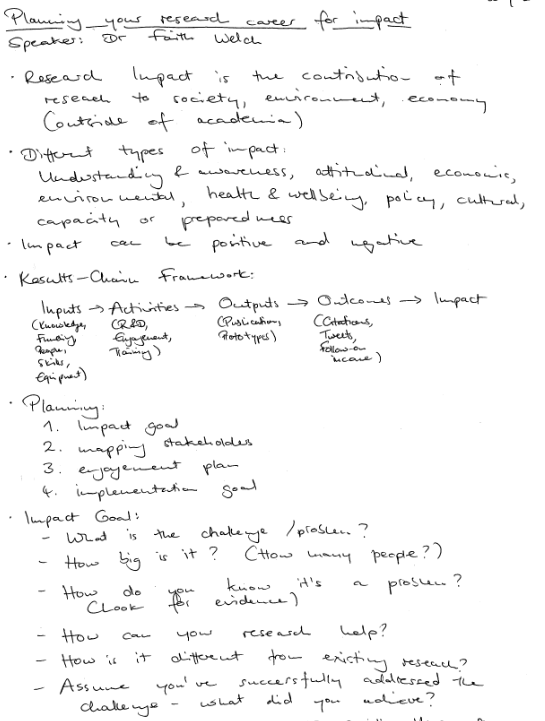 Planning your research career for impact
Speaker: Dr Faith Welch
· Research Impact is the contribution of
research to society, environment, economy
(outside of academia)
· Different types of impact:
Understanding & awareness, attitudinal, economic,
environmental, health & wellbeing, policy, cultural,
capacity or preparedness
· Impact can be positive and negative
· Results-Chain Framework:
Inputs → Activities → Outputs → Outcomes → Impact
(Knowledge, (R&D, (Publication, (Citations,
Funding Engagement, Prototypes) Tweets,
People, Training) Follow-on
Skills, income)
Equipment)
· Planning:
1. Impact goal
2. mapping stakeholdes
3. engagement plan
4. implementation goal
· Impact Goal:
- What is the challenge / problem?
- How big is it? (How many people?)
- How do you know it's a problem?
(Look for evidence)
- How can your research help?
- How is it different from existing research?
- Assume you've successfully addressed the
challenge - what did you achieve?